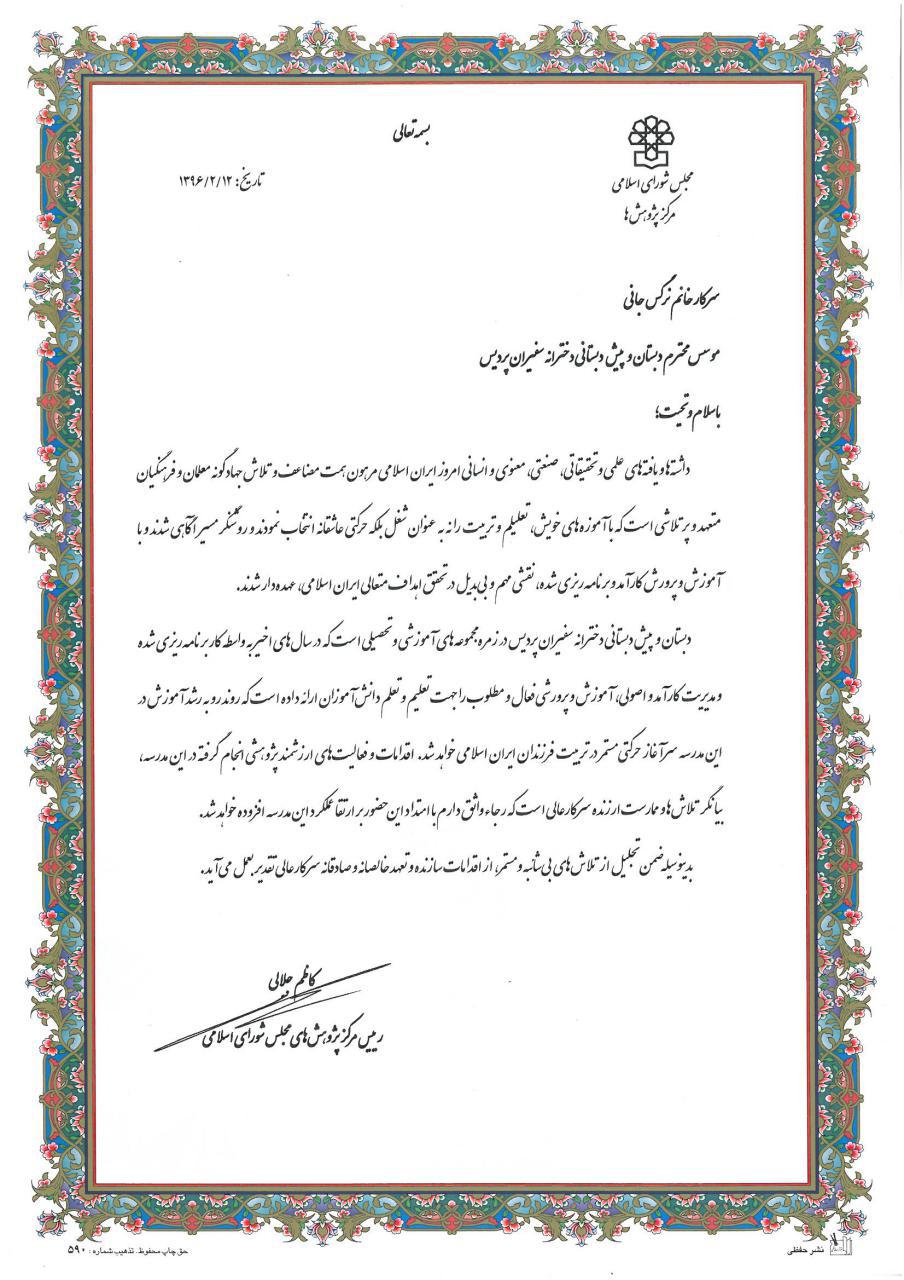 بسمه تعالی
مجلس شورای اسلامی
مرکز پژوهش ها
تاریخ: ۱۳۹۶/۲/۱۲
سرکار خانم نرگس جانی
موسس محترم دبستان و پیش دبستانی دخترانه سفیران پردیس
با سلام و تحیت؛
داشته ها و یافته های علمی و تحقیقاتی، صنعتی، معنوی و انسانی امروز ایران اسلامی مرهون همت مضاعف و تلاش جهادگونه معلمان و فرهنگیان
متعهد و پرتلاشی است که با آموزه های خویش، تعلیم و تربیت را نه به عنوان شغل بلکه حرکتی عاشقانه انتخاب نمودند و روشنگر مسیر آگاهی شدند و با
آموزش و پرورش کارآمد و برنامه ریزی شده، نقشی مهم و بی بدیل در تحقق اهداف متعالی ایران اسلامی، عهده دار شدند.
دبستان و پیش دبستانی دخترانه سفیران پردیس در زمره مجموعه های آموزشی و تحصیلی است که در سال های اخیر به واسطه کار برنامه ریزی شده
و مدیریت کارآمد و اصولی، آموزش و پرورشی فعال و مطلوب را جهت تعلیم و تعلم دانش آموزان ارائه داده است که روند رو به رشد آموزش در
این مدرسه سرآغاز حرکتی مستمر در تربیت فرزندان ایران اسلامی خواهد شد. اقدامات و فعالیت های ارزشمند پژوهشی انجام گرفته در این مدرسه،
بیانگر تلاش ها و ممارست ارزنده سرکارعالی است که رجاء واثق دارم با امتداد این حضور بر ارتقا عملکرد این مدرسه افزوده خواهد شد.
بدینوسیله ضمن تجلیل از تلاش های بی شائبه و مستمر، از اقدامات سازنده و تعهد خالصانه و صادقانه سرکارعالی تقدیر بعمل می آید.
کاظم جلالی
رییس مرکز پژوهش های مجلس شورای اسلامی
نشر حفظی
حق چاپ محفوظ. تذهیب شماره: ۵۹۰